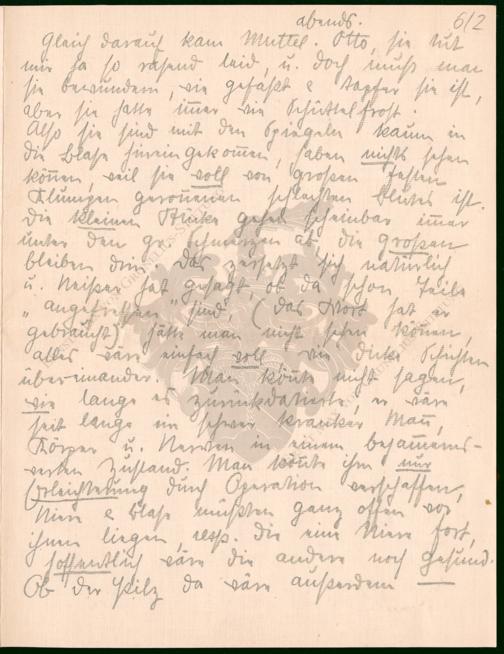 abends. 6/2
Gleich darauf kam Muttel. Otto, sie tut
mir ja so rasend leid, u. doch muß man
sie bewundern, wie gefaßt & tapfer sie ist,
aber sie hatte im̄er wie Schüttelfrost.
Also sie sind mit den Spiegeln kaum in
die Blase hineingekom̄en, haben nichts sehen
kön̄en, weil sie voll von großen festen
Klumpen geron̄enen schlechten Blutes ist.
Die kleinen Stücke gehen scheinbar im̄er
unter den gr. Schmerzen ab, die großen
bleiben drin. Das zersetzt sich natürlich
u. Neisser hat gesagt, ob da schon Teile
"angefressen" sind, (das Wort hat er
gebraucht) hätte man nicht sehen kön̄en,
alles wäre einfach voll, wie dicke Schichten
übereinander. Man kön̄te nicht sagen,
wie lange es zurückdatierte, er wäre
seit lange ein schwer kranker Man̄,
Körper u. Nerven in einem bejam̄erns-
werten Zustand. Man kön̄te ihm nur
Erleichterung durch Operation verschaffen,
Niere & Blase müßten ganz offen vor
ihnen liegen, resp. die eine Niere fort,
hoffentlich wäre die andere noch gesund.
Ob der Pilz da wäre außerdem —